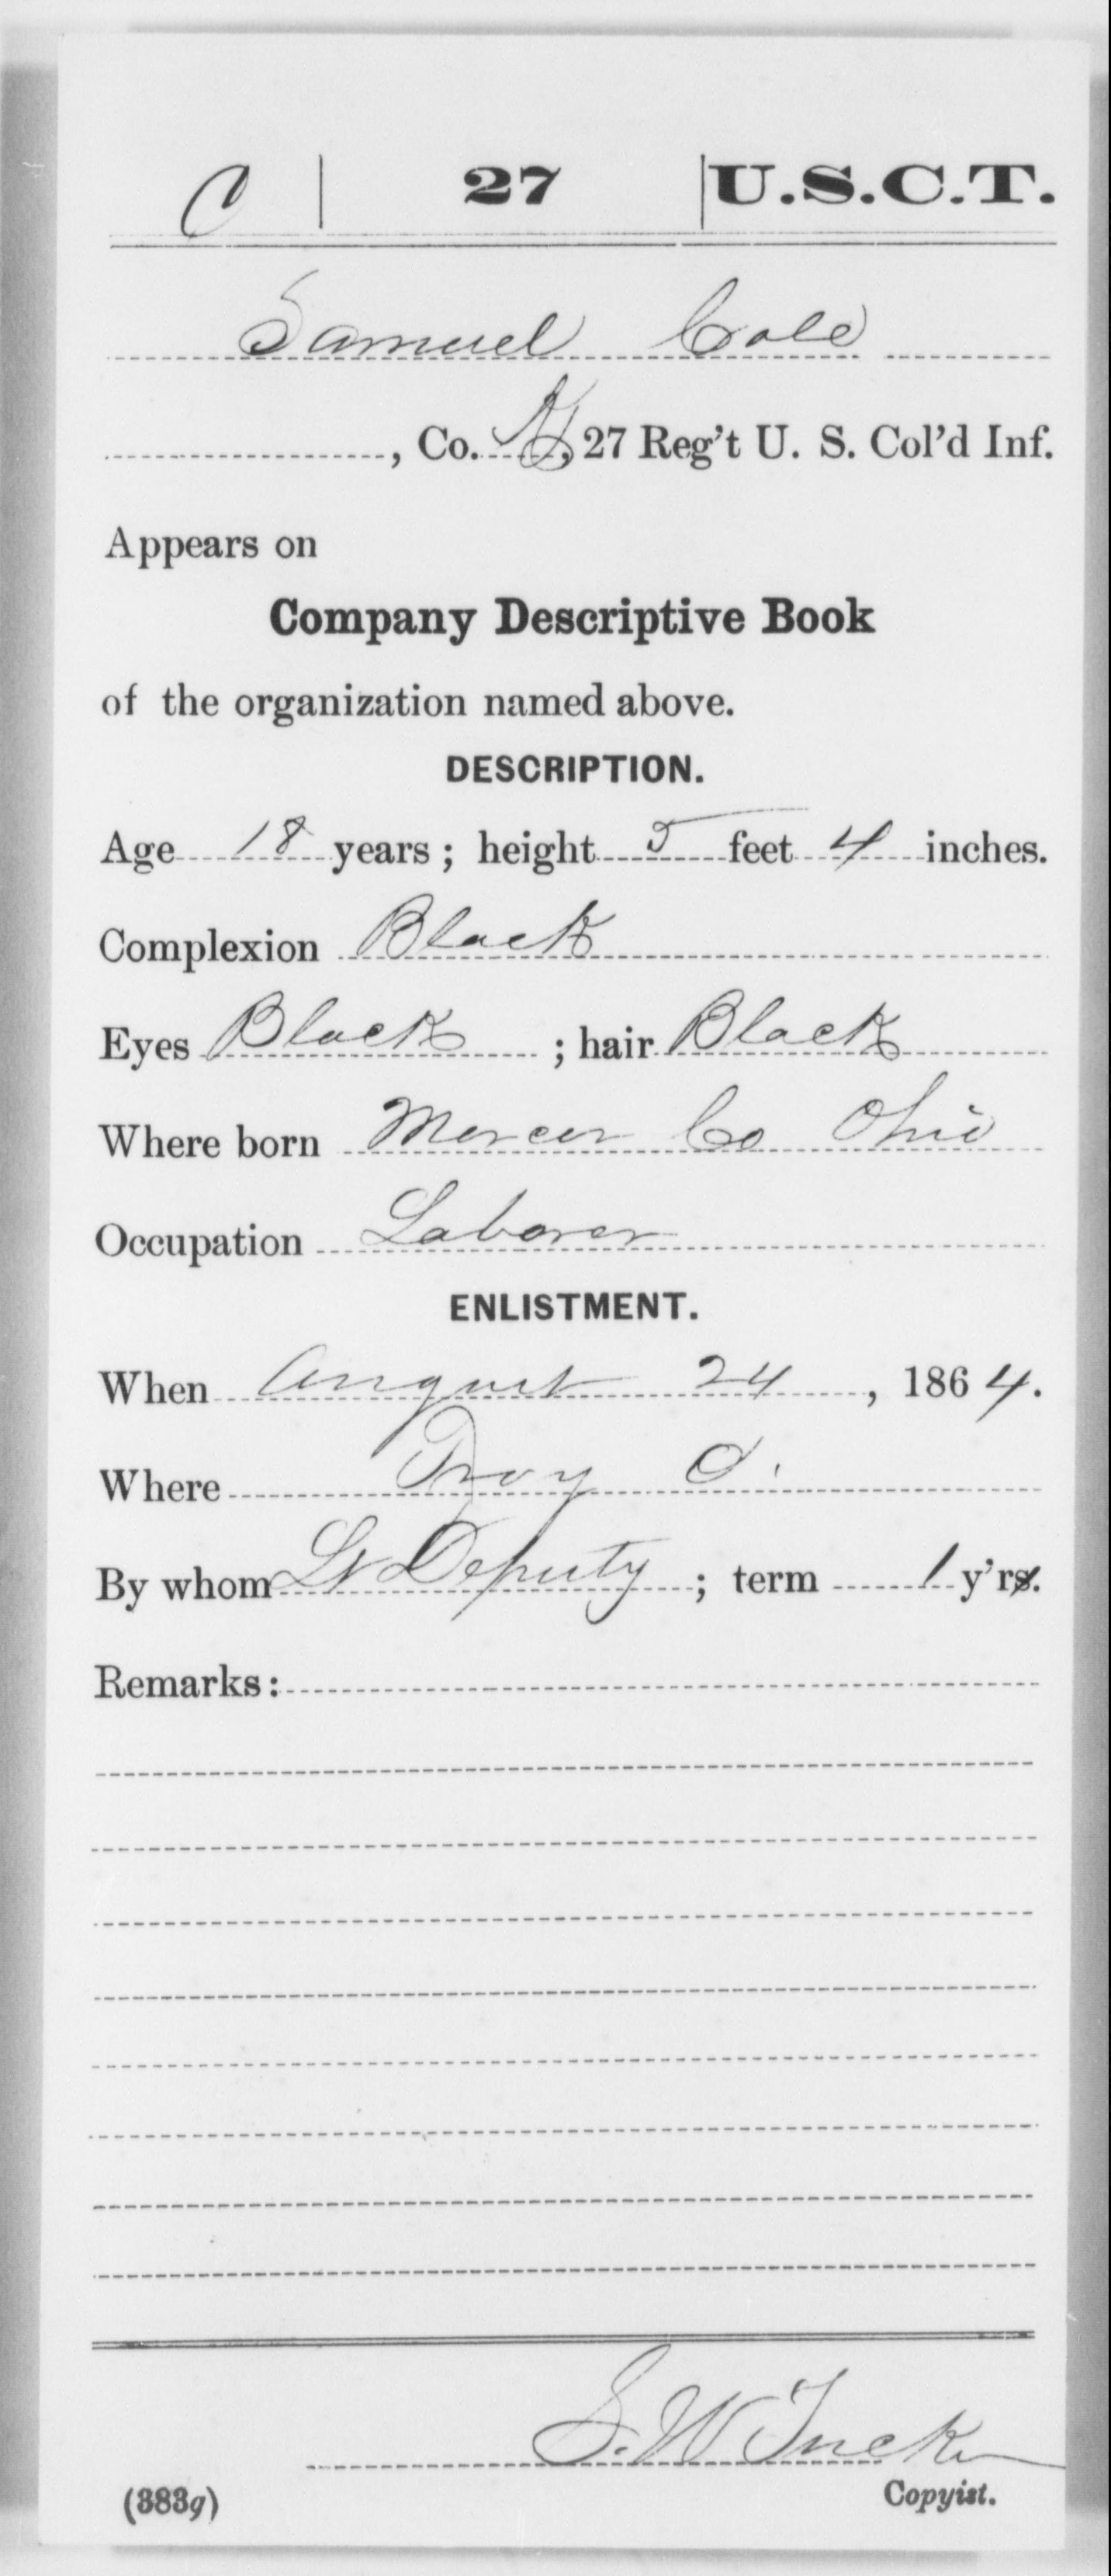 C | 27 | U.S.C.T.
Samuel Cole
, Co. , 27 Reg't U. S. Col'd Inf.
Appears on
Company Descriptive Book
of the organization named above.
DESCRIPTION.
Age 18 years; height 5 feet 4 inches.
Complexion Black
Eyes Black ; hair Black
Where born Mercer Co Ohio
Occupation Laborer
ENLISTMENT.
When August 24, 1864.
Where Troy O.
By whom Lt Deputy ; term 1 y'rs.
Remarks:
S. W. Tucker
(383g) Copyist.